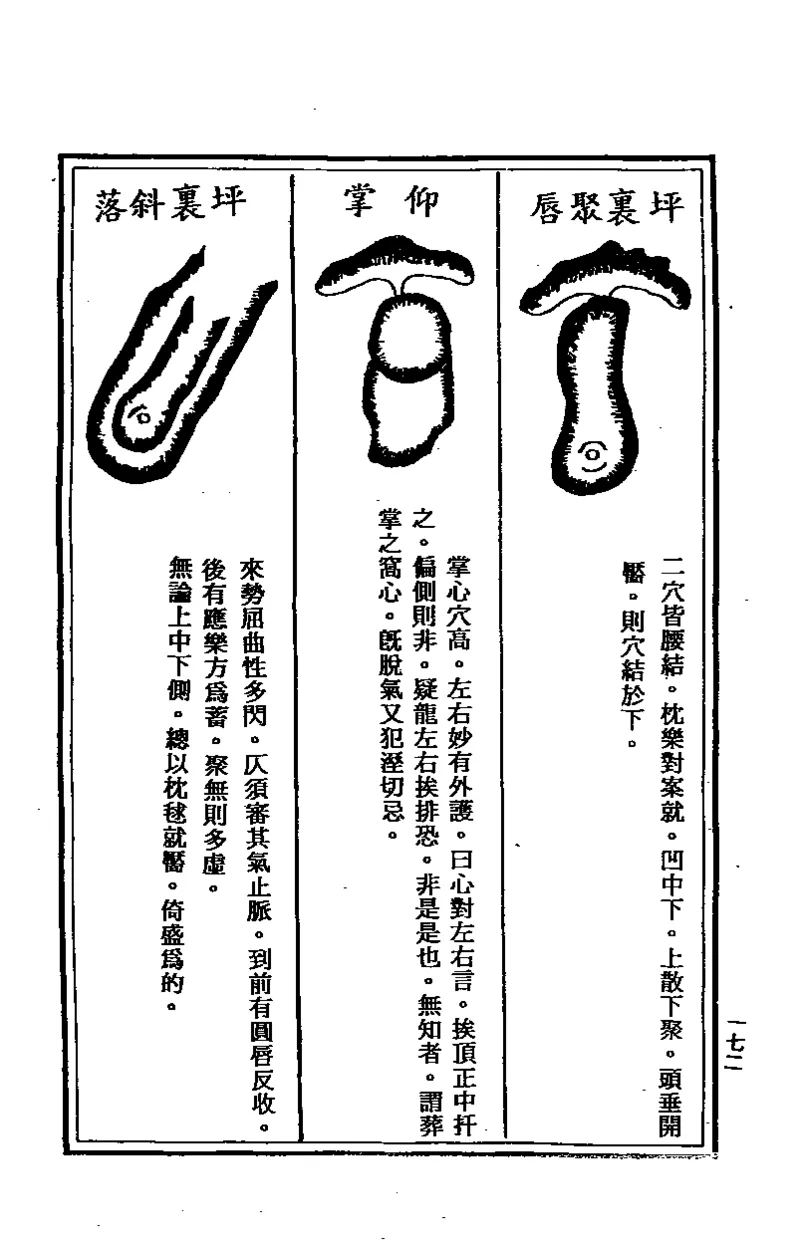 坪裏聚唇
二穴皆腰結。枕樂對案就。凹中下。上散下聚。頭垂開
靨。則穴結於下。
仰掌
掌心穴高。左右妙有外護。曰心對左右言。挨頂正中扦
之。偏側則非。疑龍左右挨排恐。非是是也。無知者。謂葬
掌之窩心。既脫氣又犯溼切忌。
坪裏斜落
來勢屈曲性多閃。仄須審其氣止脈。到前有圓唇反收。
後有應樂方爲蓄。聚無則多虛。
無論上中下側。總以枕毬就靨。倚盛爲的。
一七二